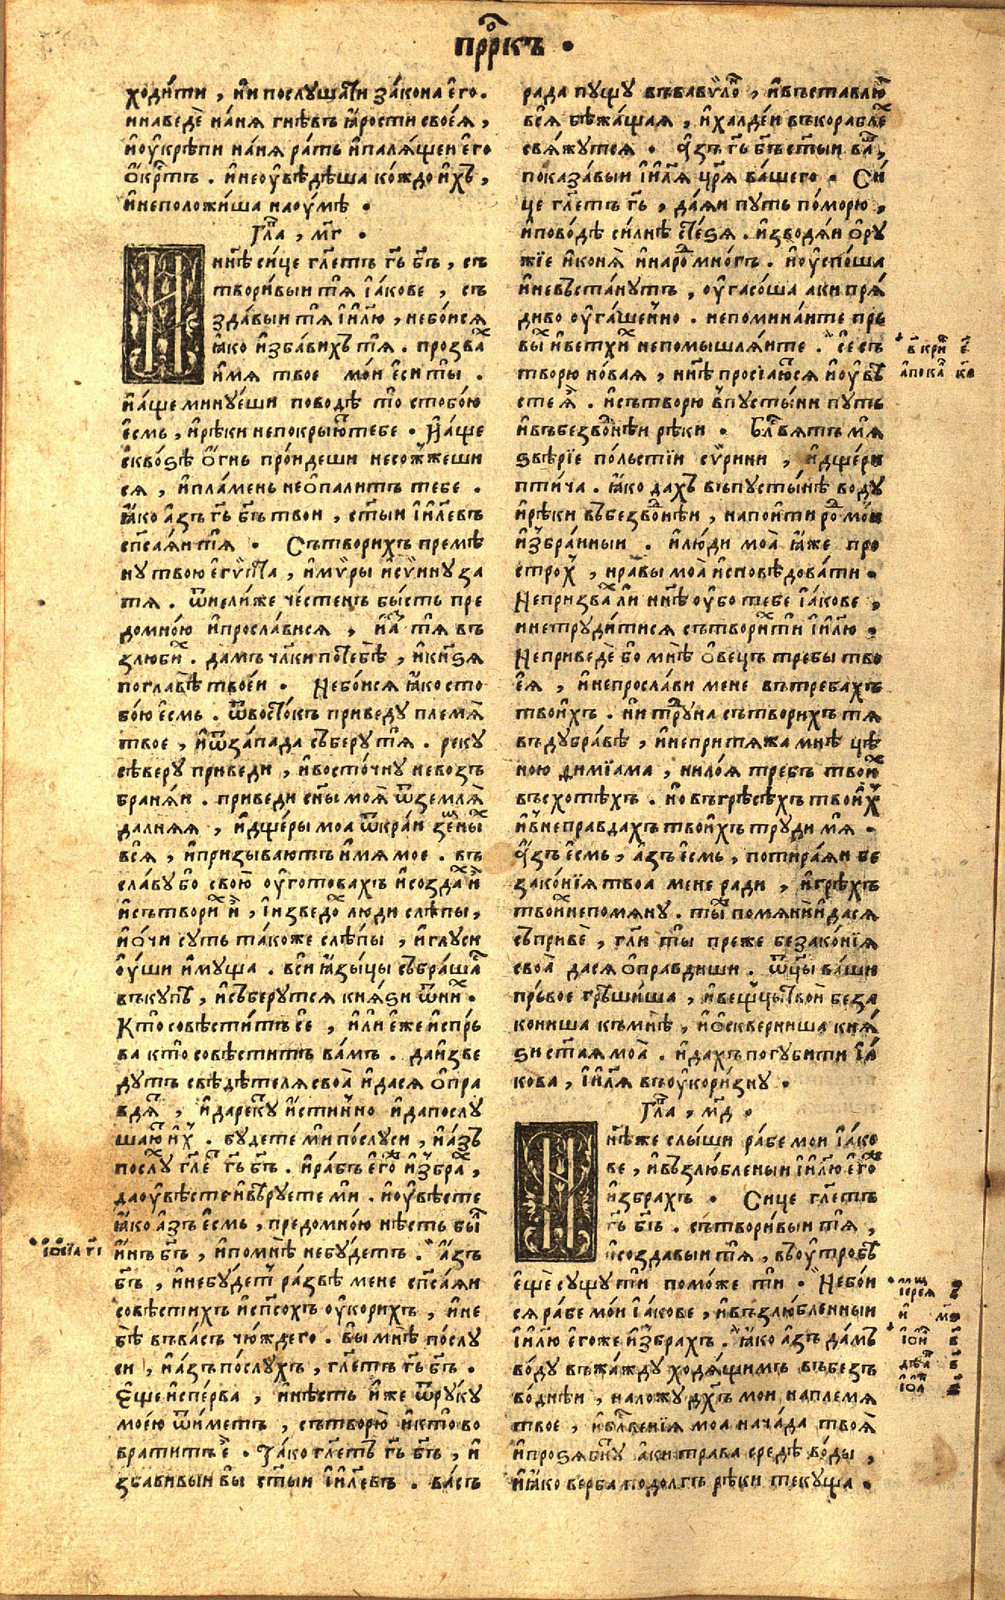 прⷪ҇ркъ .
ходи́ти , и҆ни послꙋшати зако́на е҆го̀ .
и҆наведѐ на́ня гнѣ́въ ꙗ҆́рости своеѧ̀ ,
и҆ оу҆крѣпи на́ня ра́ть и҆палѧ́щеи е҆го
о҆́крⷭ҇тъ . и҆неоу҆вѣ́дѣша ко́ждо и҆́хъ ,
и҆неположи́ша наоу҆мѣ̀ .
Гла҃ , м҃г .
Н ннѣ҃ си́це гл҃етъ гь҃ бг҃ъ , съ
твори́выи тѧ̀ і҆а́кове , съ
зда́выи тѧ̀ і҆и҃лю , небо́исѧ
ꙗ҆́ко и҆зба́вихъ тѧ̀ . прозва́х
и҆́мѧ твое мо́и е҆сѝ ты̀ .
и҆а҆́ще минꙋ́еши пово́дѣ то̀ стобо́ю
е҆́смь , и҆рѣ́ки непокры́ютъ тебе . и҆а҆́ще
сквозѣ̀ о҆́гнь про́идеши несож́жеши
сѧ , и҆пла́мень неопали́тъ тебе .
ꙗ҆́ко а҆́зъ гь҃ бг҃ъ тво́и , ст҃ыи і҆и҃левъ
сп҃саѧи тѧ̀ . Сътвори́хъ премѣ́
нꙋ твою̀ е҆гѵ́пта , и҆мѵ́ры и҆сѵ́инꙋ за
тѧ̀ . ѿне́лиже че́стенъ бы́сть пре
домно́ю и҆просла́висѧ , и҆а҆́зъ тѧ̀ въ
злюби́х . да́мъ чл҃ки потебѣ̀ , и҆кн҃зѧ
поглавѣ̀ твое́и . Небо́исѧ ꙗ҆́ко сто
бо́ю е҆́смь . ѿвосто́къ приведꙋ̀ племѧ̀
твое , и҆ѿза́пада съберꙋ̀ тѧ̀ . рекꙋ̀
сѣ́верꙋ приведи , и҆восто́чнꙋ невозъ
бранѧ́и . приведи сн҃ы моѧ̀ ѿземлѧ̀
далнѧѧ , и҆дщеры моа ѿкра́и земныⷯ
всѧ̀ , и҆призыва́ютъ и҆́мѧ мое . въ
сла́вꙋ бо свою̀ оу҆гото́вахъ и҆созда́х и҆̀
и҆сътвори́х и҆̀ , і҆изведо́х лю́ди слѣ́пы ,
и҆о҆́чи сꙋ́ть та́коже слѣ́пы , и҆глꙋ́си
оу҆́ши и҆мꙋ́ща . вси ꙗ҆зы́цы събра́шасѧ
въкꙋ́пѣ , и҆съберꙋ́тсѧ кнѧ́зи ѿни́х .
Кто̀ совѣсти́тъ се , и҆ли е҆же и҆спрь́
ва кто̀ совѣсти́тъ ва́мъ . даи҆зве
дꙋ́тъ свѣдѣ́телѧ своа̀ и҆дасѧ о҆пра
вдѧ́тъ , и҆дарекꙋ́тъ и҆́стинно и҆дапослꙋ
шаютъ и҆́х . бꙋ́дете ми по́слꙋси , и҆а҆́зъ
послꙋ́х гл҃етъ гь҃ бг҃ъ . и҆ра́бъ е҆го́же и҆збра́х ,
даоу҆вѣ́сте и҆вѣ́рꙋете ми . и҆оу҆вѣ́сте
ꙗ҆́ко а҆́зъ е҆́смь , предомно́ю нѣ́сть бы́лъ
и҆́нъ бг҃ъ , и҆помнѣ̀ небꙋ́детъ . а҆́зъ
бг҃ъ , и҆небꙋ́детъ ра́звѣ мене сп҃саѧи
совѣсти́хъ и҆сп҃со́хъ оу҆кори́хъ , и҆не
бѣ̀ въва́съ чюждего . вы̀ мнѣ̀ по́слꙋ
си , и҆а҆́зъ по́слꙋхъ , гл҃етъ гь҃ бг҃ъ .
Е҆ще и҆спе́рва , и҆нѣ́сть и҆́же ѿрꙋ́кꙋ
моею ѿи́метъ , сътворю̀ и҆кто̀ во
врати́тъ е҆̀ . Та́ко гл҃етъ гь҃ бг҃ъ , и҆
зба́вивыи вы̀ ст҃ыи і҆и҃левъ . ва́съ
ра́да пꙋщꙋ̀ въвавѵло́нъ , и҆въста́влю
всѧ̀ бѣжа́щаѧ , и҆халде́и въкораблеⷯ
свѧ́жꙋтсѧ . а҆́зъ гь҃ бг҃ъ ст҃ыи ва́шъ ,
показа́выи і҆и҃лѧ цр҃ѧ ва́шего . Си́
це гл҃етъ гь҃ , даѧ́и пꙋ́ть по́морю ,
и҆пово́дѣ си́лнѣ стезѧ̀ . и҆зводѧ́и о҆рꙋ́
жїе и҆ко́нѧ и҆наро́дъ мно́гъ . и҆оу҆спо́ша
и҆невъста́нꙋтъ , оу҆гасо́ша аки прѧ́
диво оу҆гаше́нно . непомина́ите прь
вы́х и҆ветхи́х непомышлѧ́ите . се съ
творю̀ но́ваѧ , ннѣ҃ просїа́юсѧ и҆оу҆вѣ́
сте ѧ҆̀ . и҆сътворю̀ впꙋсты́ни пꙋ́ть
и҆въбезво́днѣи рѣ́ки . Бл҃гвѧ́тъ мѧ̀
ѕвѣ́рїе по́льстїи сѵ́рини , и҆дще́ри
пти́ча . ꙗ҆́ко да́хъ въпꙋсты́нѣ во́дꙋ
и҆рѣ́ки въбезво́днѣи , напои́ти ро́дъ мо́и
и҆збра́нныи . и҆лю́ди моа̀ ꙗ҆́же про
стро́х , нра́вы моа̀ и҆сповѣ́довати .
Непризва́х ли ннѣ҃ оу҆бо тебе і҆а́кове ,
и҆нетрꙋди́тисѧ сътвори́х ти і҆и҃лю .
Неприведе́ бо мнѣ̀ о҆ве́цъ тре́бы тво
еѧ̀ , и҆непросла́ви мене въ тре́бахъ
твои́хъ . ни трꙋ́на сътвори́хъ тѧ
въдꙋбра́вѣ , и҆непритѧ́жа мнѣ̀ цѣ
но́ю ѳимїа́ма , нило́ѧ тре́бъ твои́х
въсхотѣ́хъ . но въгрѣсѣ́хъ твои́х
и҆внепра́вдахъ твои́хъ трꙋди́х мѧ̀ .
а҆́зъ е҆́смь , а҆́зъ е҆́смь , потира́ѧи бе
зако́нїѧ твоа мене ра́ди , и҆грѣхъ
твои́хъ непомѧнꙋ̀ . ты̀ помѧнѝ и҆дасѧ
съпривѐ , гл҃и ты̀ преже безако́нїѧ
своа̀ дасѧ о҆пра́вдиши . ѿцы ва́ши
прьвое грѣши́ша , и҆вещцы̀ твои беза
кониша къмнѣ̀ , и҆о҆скверни́ша кнѧ́
зи ст҃аѧ моа̀ . и҆да́хъ погꙋби́ти і҆а́
кова , і҆и҃лѧ въоу҆кори́знꙋ .
Гла҃ , м҃д .
Н ннѣ́же слы́ши ра́бе мо́и і҆а́ко
ве , и҆възлю́бленыи і҆и҃лю е҆го́же
и҆збра́хъ . Си́це гл҃етъ
гь҃ бг҃ъ . сътвори́выи тѧ̀ ,
и҆созда́выи тѧ̀ , въоу҆тро́бѣ
е҆щѐ сꙋ́щꙋ ти помо́же ти . Небо́и
сѧ ра́бе мо́и і҆а́кове , и҆възлю́бленныи
і҆и҃лю е҆гоже и҆збра́хъ . ꙗ҆́ко а҆́зъ да́мъ
во́дꙋ въжа́ждꙋ ходѧ́щимъ въбезъ
во́днѣи , наложꙋ̀ дх҃ъ мо́и наплемѧ̀
твое , и҆бл҃гве́нїѧ моа нача́да твоѧ̀
и҆прозѧ́бнꙋтъ а҆ки трава̀ средѣ̀ во́ды ,
и҆ꙗ҆́ко верба̀ подо́лгъ рѣ́ки текꙋ́ща .